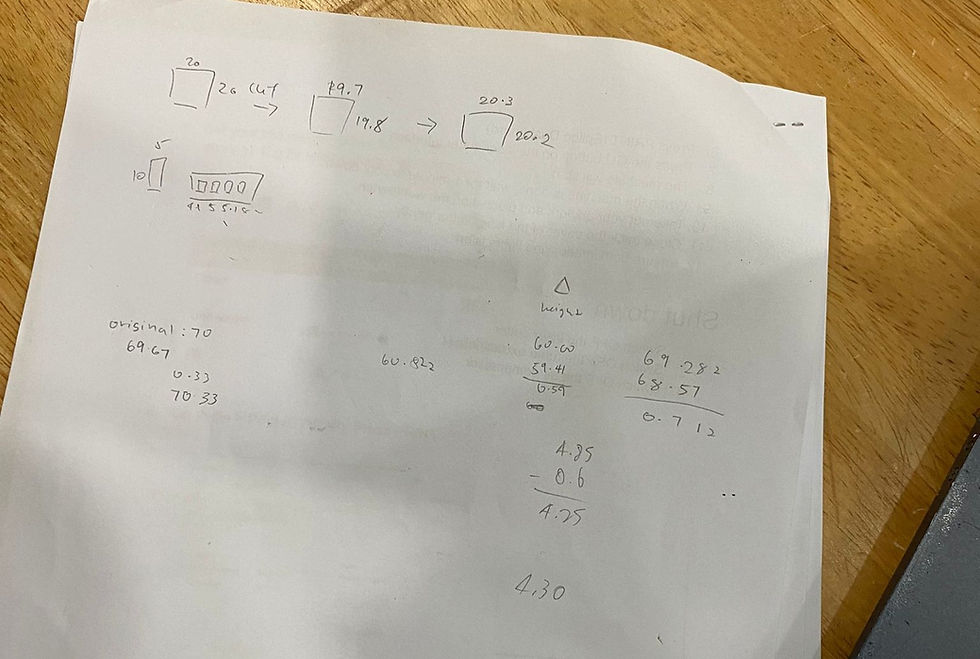 20
20 cut → 19.7
19.8 → 20.3
20.2
5
10
Δ
height
original : 70
69.67
0.33
70.33
60.822
60.00
59.41
0.59
69.282
68.57
0.712
4.85
- 0.6
4.25
4.30